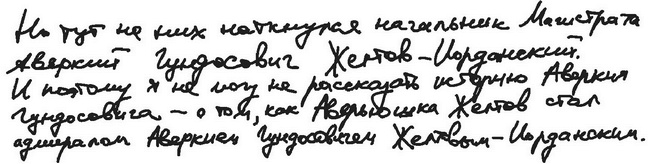 Но тут на них наткнулся начальник Магистрата
Аверкий Гундосович Желтов-Иорданский.
И потому я не могу не рассказать историю Аверкия
Гундосовича – о том, как Аверьяшка Желтов стал
адмиралом Аверкием Гундосовичем Желтовым-Иорданским.